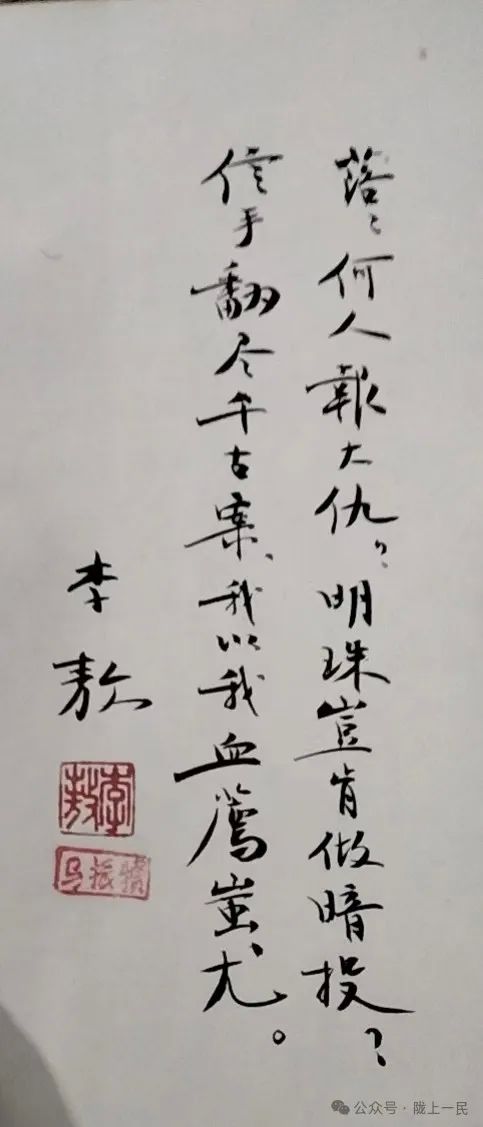 落々何人報大仇？明珠豈肯做暗投？
信手翻尽千古案、我以我血薦蚩尤。
李敖
李敖
公众号·陇上一民